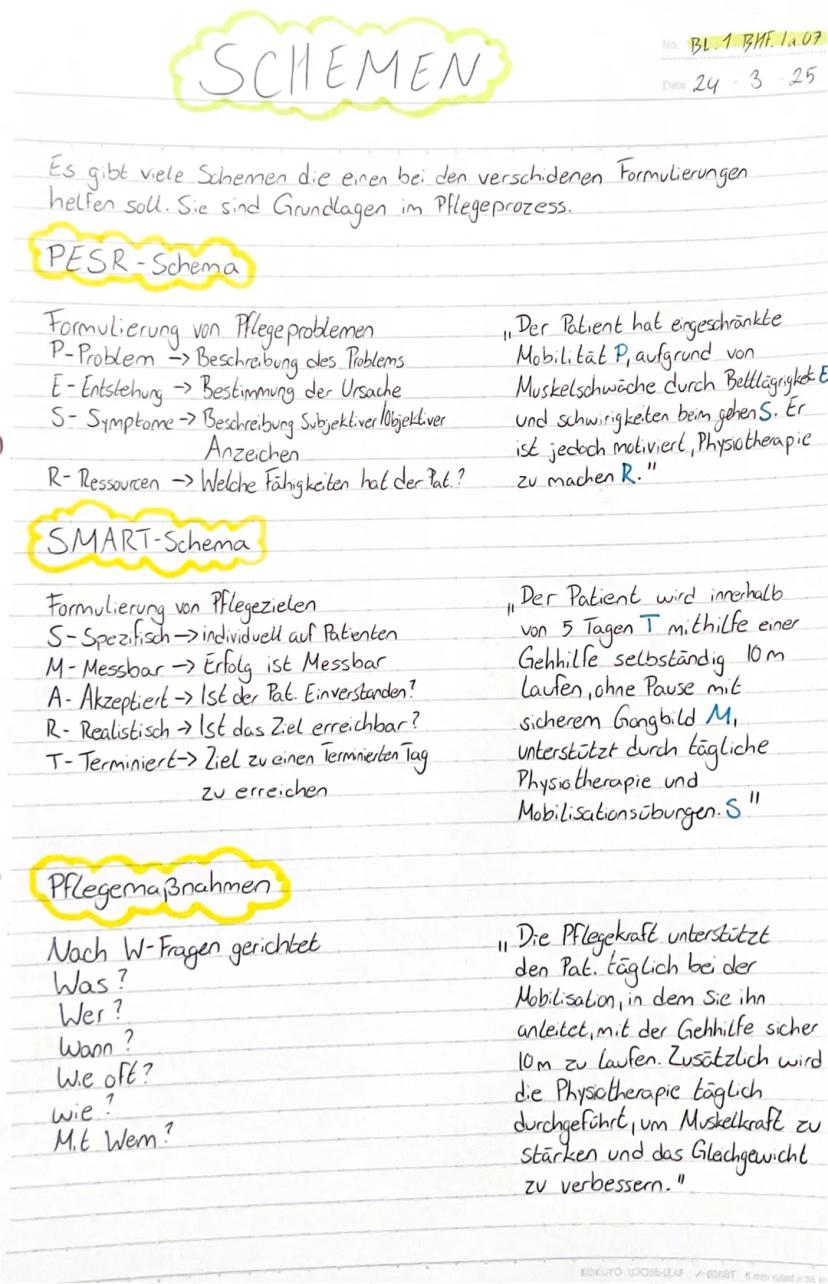 SCHEMEN
No. BL.1 BHF. 1a.07
Date 24 · 3 · 25
Es gibt viele Schemen die einen bei den verschidenen Formulierungen
helfen soll. Sie sind Grundlagen im Pflegeprozess.
PESR-Schema
Formulierung von Pflegeproblemen
P-Problem -> Beschreibung des Problems
E-Entstehung -> Bestimmung der Ursache
S-Symptome -> Beschreibung Subjektiver/Objektiver
Anzeichen
R-Ressourcen -> Welche Fähigkeiten hat der Pat.?
„Der Patient hat eingeschränkte
Mobilität P, aufgrund von
Muskelschwäche durch Bettlägrigkeit E
und schwirigkeiten beim gehen S. Er
ist jedoch motiviert, Physiotherapie
zu machen R."
SMART-Schema
Formulierung von Pflegezielen
S-Spezifisch -> individuell auf Patienten
M-Messbar -> Erfolg ist Messbar
A-Akzeptiert -> Ist der Pat. Einverstanden?
R-Realistisch -> Ist das Ziel erreichbar?
T-Terminiert -> Ziel zu einen Terminierten Tag
zu erreichen
„Der Patient wird innerhalb
von 5 Tagen T mithilfe einer
Gehhilfe selbständig 10m
laufen, ohne Pause mit
sicherem Gangbild M,
unterstützt durch tägliche
Physiotherapie und
Mobilisationsübungen. S"
Pflegemaßnahmen
Nach W-Fragen gerichtet
Was?
Wer?
Wann?
Wie oft?
wie?
Mit Wem?
„Die Pflegekraft unterstützt
den Pat. täglich bei der
Mobilisation, in dem Sie ihn
anleitet, mit der Gehhilfe sicher
10m zu laufen. Zusätzlich wird
die Physiotherapie täglich
durchgeführt, um Muskelkraft zu
stärken und das Gleichgewicht
zu verbessern."
KOKUYO LOOSE-LEAF